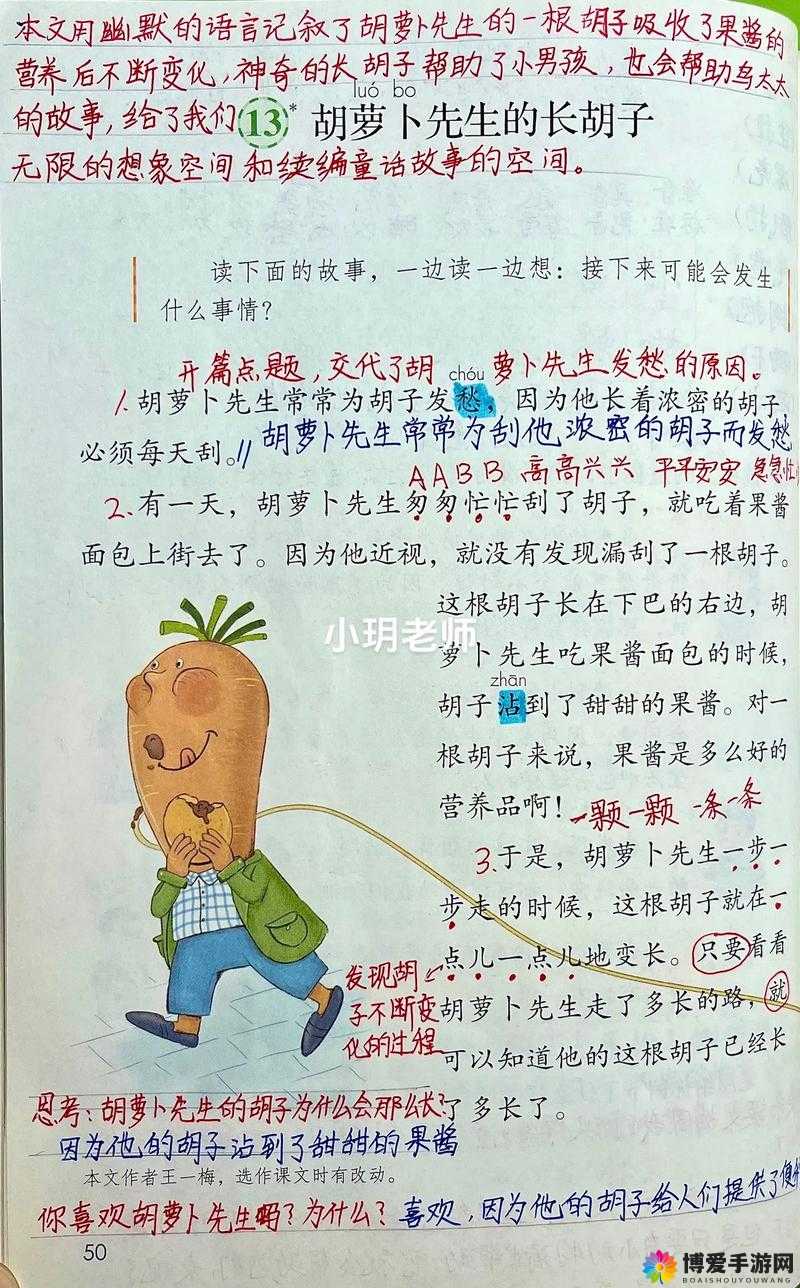 本文用幽默的语言记叙了胡萝卜先生的一根胡子吸收了果酱的
营养后不断变化,神奇的长胡子帮助了小男孩,也会帮助鸟太太
luó bo
的故事,给了我们 13* 胡萝卜先生的长胡子
无限的想象空间和续编童话故事的空间。
读下面的故事,一边读一边想:接下来可能会发生
什么事情?
开篇点题,交代了胡萝卜先生发愁的原因。
chóu
1.胡萝卜先生常常为胡子发愁,因为他长着浓密的胡子,
必须每天刮。// 胡萝卜先生常常为刮他浓密的胡子而发愁
AABB 高高兴兴 平平安安 急急忙
2.有一天,胡萝卜先生匆匆忙忙刮了胡子,就吃着果酱
面包上街去了。因为他近视,就没有发现漏刮了一根胡子。
这根胡子长在下巴的右边,胡
小玥老师
萝卜先生吃果酱面包的时候,
zhān
胡子沾到了甜甜的果酱。对一
根胡子来说,果酱是多么好的
营养品啊!一颗一颗 一条一条
3.于是,胡萝卜先生一步一
步走的时候,这根胡子就在一
点儿一点儿地变长。只要看看
发现胡
子不断变
化的过程
胡萝卜先生走了多长的路,就
可以知道他的这根胡子已经长
了多长了。
思考:胡萝卜先生的胡子为什么会那么长?
因为他的胡子沾到了甜甜的果酱
本文作者王一梅,选作课文时有改动。
你喜欢胡萝卜先生吗?为什么?喜欢,因为他的胡子给人们提供了便
50
博爱手游网
BOAISHOUYOUWANG